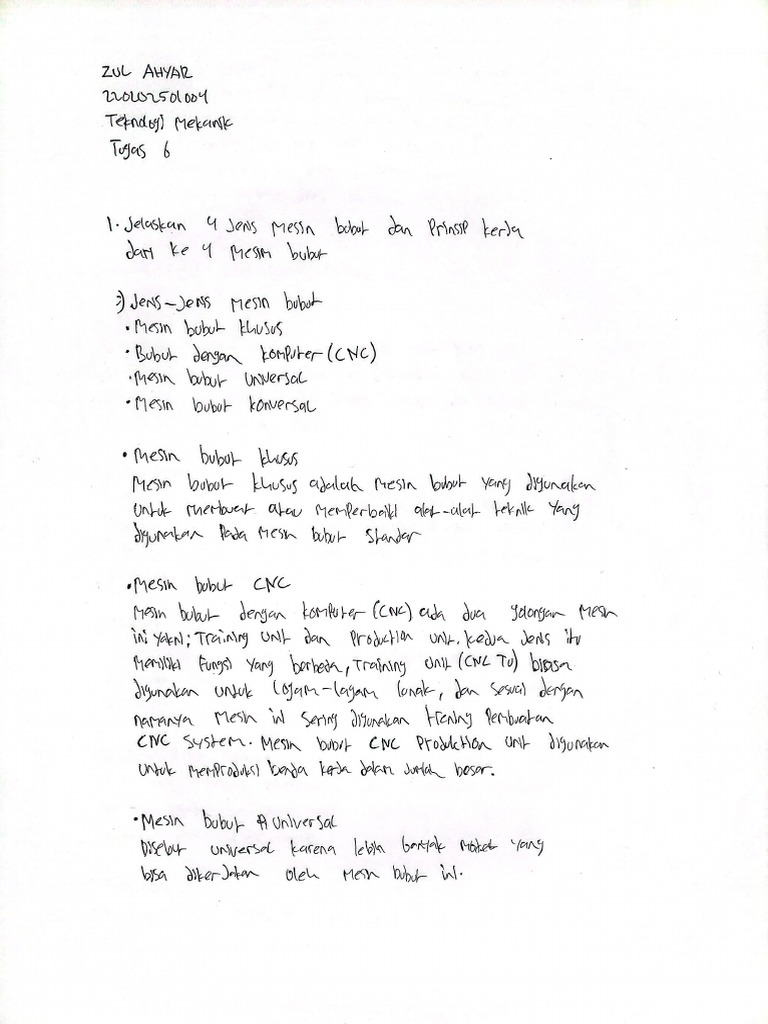 ZUL AHYAR
220202501004
Teknologi Mekanik
Tugas 6
1. Jelaskan 4 Jenis Mesin bubut dan Prinsip kerja
dari ke 4 Mesin bubut
Jenis-Jenis mesin bubut
• Mesin bubut khusus
• Bubut dengan komputer (CNC)
• Mesin bubut universal
• Mesin bubut konversal
• Mesin bubut khusus
Mesin bubut khusus adalah mesin bubut yang digunakan
untuk membuat atau memperbaiki alat-alat teknik yang
digunakan pada mesin bubut standar
• Mesin bubut CNC
Mesin bubut dengan komputer (CNC) ada dua golongan mesin
ini yakni; Training Unit dan Production unit. kedua Jenis itu
Memiliki fungsi yang berbeda, Training Unit (CNC TU) biasa
digunakan untuk logam-logam lunak, dan sesuai dengan
namanya mesin ini sering digunakan trening pembuatan
CNC System. Mesin bubut CNC Produktion unit digunakan
untuk memproduksi benda kerja dalam Jumlah besar.
• Mesin bubut universal
Disebut universal karena lebih banyak yang
bisa dikerjakan oleh mesin bubut ini.